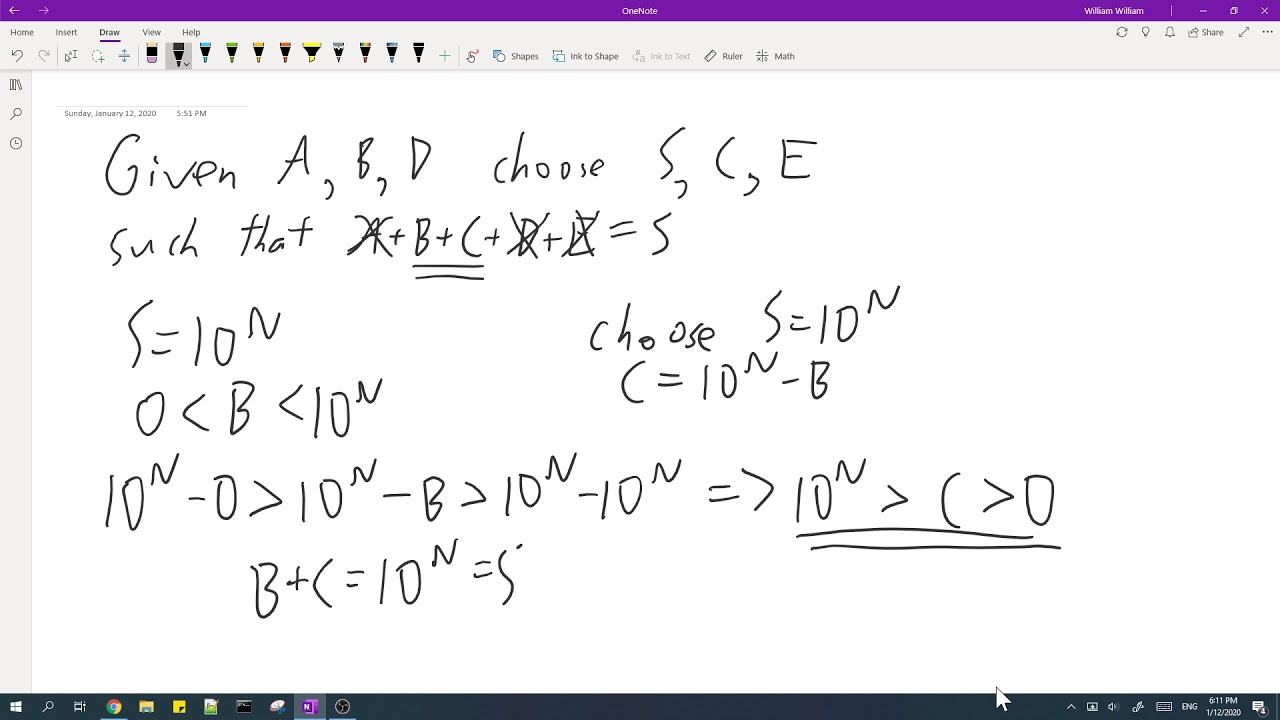 OneNote
William William
Home Insert Draw View Help
Share
Shapes Ink to Shape Ink to Text Ruler Math
Sunday, January 12, 2020 5:51 PM
Given A, B, D choose S, C, E
such that A+B+C+D+E=S
S=10^N
choose S=10^N
C=10^N-B
0<B<10^N
10^N-0>10^N-B>10^N-10^N => 10^N>C>0
B+C=10^N=S
ENG
6:11 PM
1/12/2020
4